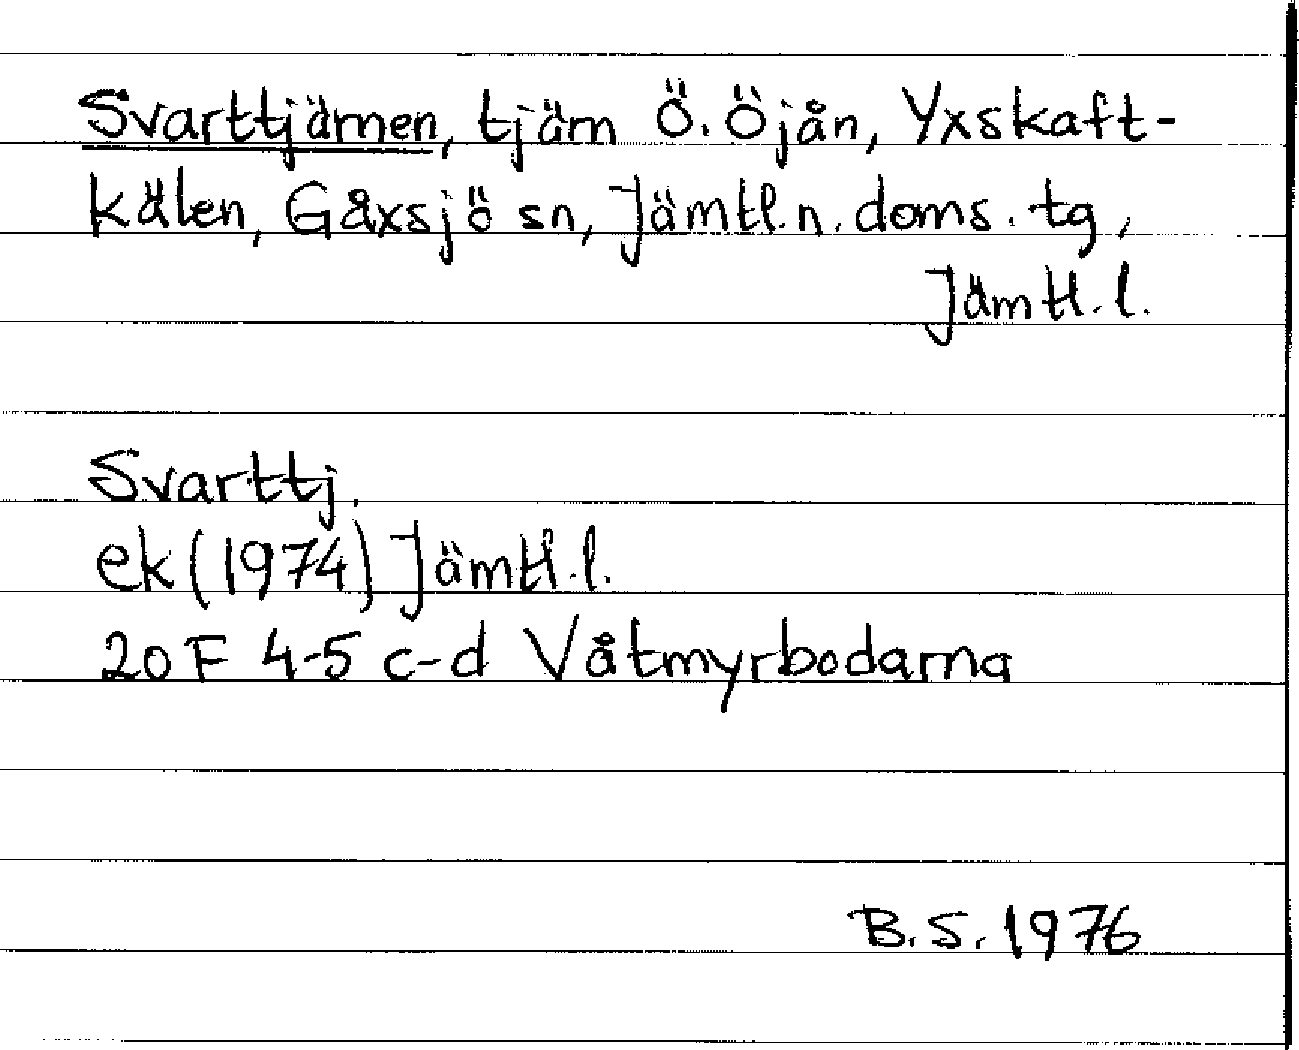 Svarttjärnen, tjärn Ö. Öjån, Yxskaft-
kälen, Gåxsjö sn, Jämtl.n. doms. tg,
Jämtl. l.
Svarttj.
ek (1974) Jämtl. l.
20 F 4-5 c-d Våtmyrbodarna
B. S. 1976